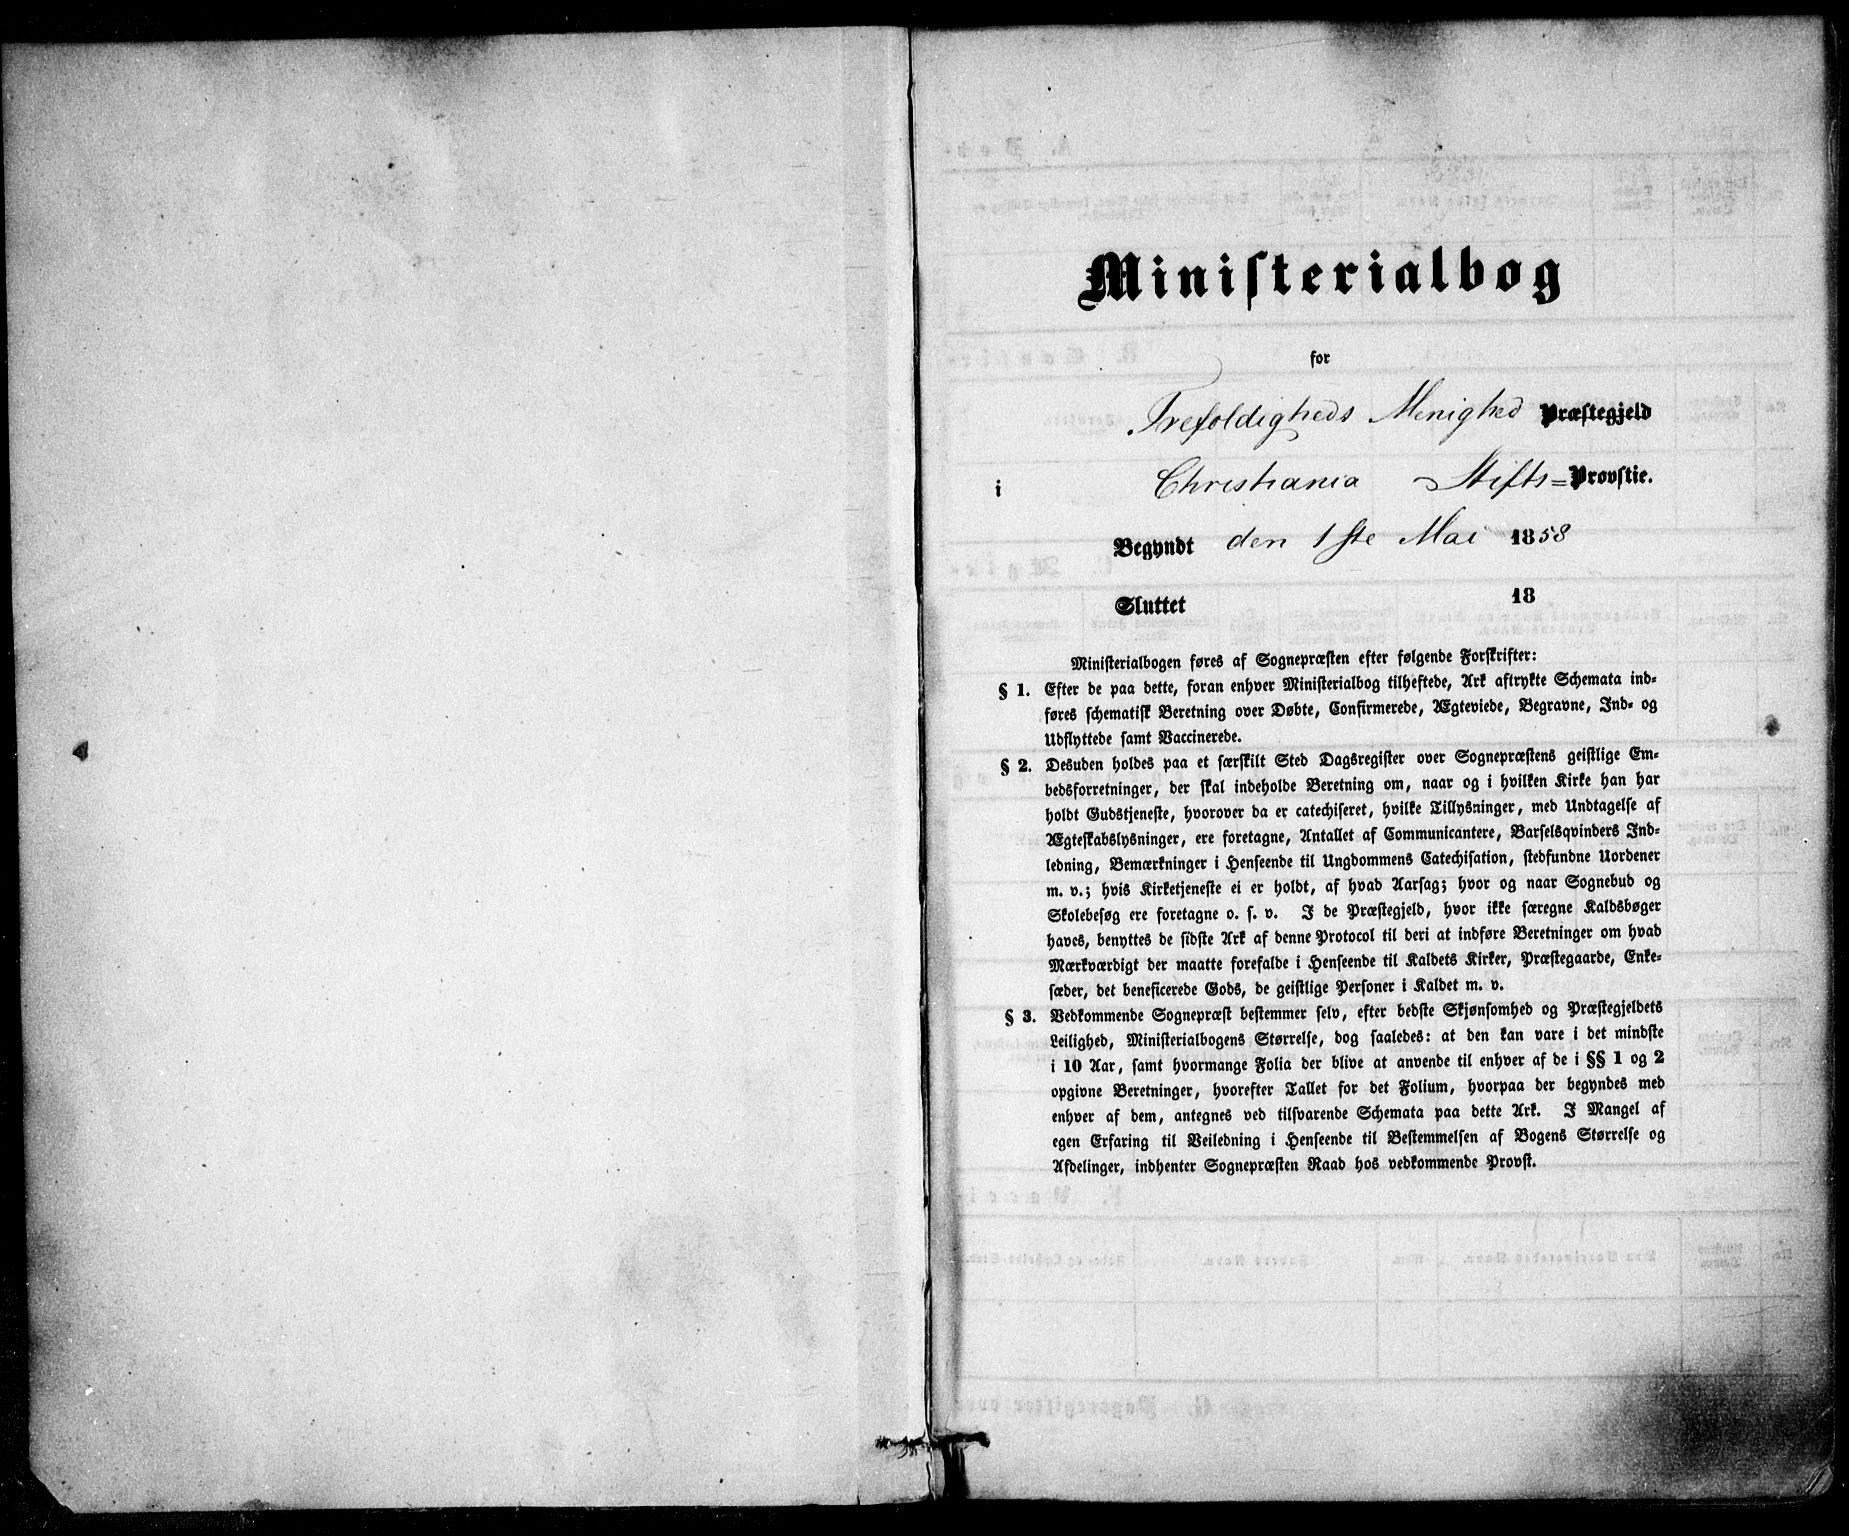 Ministerialbog
for
Trefoldigheds Menighed Præstegjeld
i Christiania Stifts=Provstie.
Begyndt den 1ste Mai 1858
Sluttet 18
Ministerialbogen føres af Sognepræsten efter følgende Forskrifter:
§ 1. Efter de paa dette, foran enhver Ministerialbog tilheftede, Ark aftrykte Schemata ind-
føres schematisk Beretning over Døbte, Confirmerede, Ægteviede, Begravne, Ind- og
Udflyttede samt Vaccinerede.
§ 2. Desuden holdes paa et særskilt Sted Dagsregister over Sognepræstens geistlige Em-
bedsforretninger, der skal indeholde Beretning om, naar og i hvilken Kirke han har
holdt Gudstjeneste, hvorover da er catechiseret, hvilke Tillysninger, med Undtagelse af
Ægteskabslysninger, ere foretagne, Antallet af Communicantere, Barselsqvinders Ind-
ledning, Bemærkninger i Henseende til Ungdommens Catechisation, stedfundne Uordener
m. v.; hvis Kirketjeneste ei er holdt, af hvad Aarsag; hvor og naar Sognebud og
Skolebesøg ere foretagne o. s. v. I de Præstegjeld, hvor ikke særegne Kaldsbøger
haves, benyttes de sidste Ark af denne Protocol til deri at indføre Beretninger om hvad
Mærkværdigt der maatte forefalde i Henseende til Kaldets Kirker, Præstegaarde, Enke-
sæder, det beneficerede Gods, de geistlige Personer i Kaldet m. v.
§ 3. Vedkommende Sognepræst bestemmer selv, efter bedste Skjønsomhed og Præstegjeldets
Leilighed, Ministerialbogens Størrelse, dog saaledes: at den kan vare i det mindste
i 10 Aar, samt hvormange Folia der blive at anvende til enhver af de i §§ 1 og 2
opgivne Beretninger, hvorefter Tallet for det Folium, hvorpaa der begyndes med
enhver af dem, antegnes ved tilsvarende Schemata paa dette Ark. I Mangel af
egen Erfaring til Veiledning i Henseende til Bestemmelsen af Bogens Størrelse og
Afdelinger, indhenter Sognepræsten Raad hos vedkommende Provst.